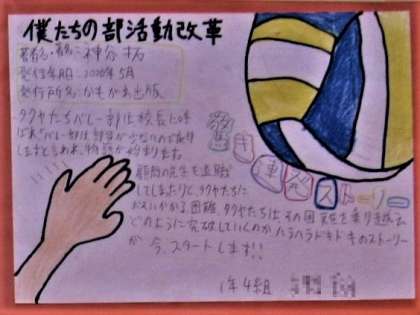 僕たちの部活動改革
著者名・神谷 拓
発行年月:2020年5月
発行所名:かもがわ出版
タクヤたちバレー部は校長に呼
ばれ、バレー部は部員が少ないので廃部に
しますと言われ、物語が始まります。
顧問の先生を退職
してしまったりと、タクヤたちに
おそいかかる困難、タクヤたちはその困難を乗り越え
どのように突破していくのか、ハラハラドキドキのストーリー
が今、スタートします!!
連発ストーリー
1年4組